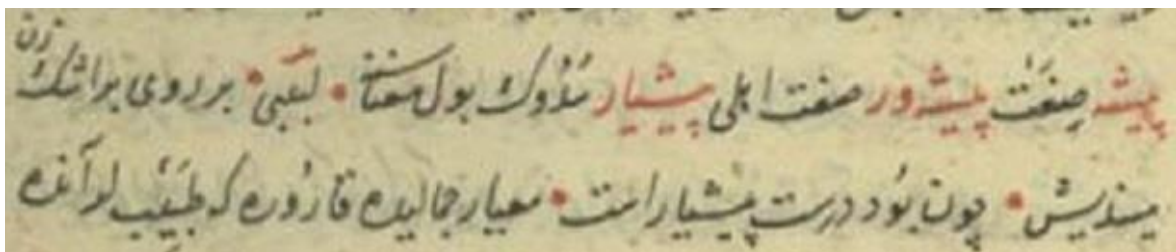 پیشه صِنعَت پیشه‌ور صنعت اهلی پیشیار سُدُوك بول معناسنه • لبیبی • بر روی بر اشك زن
میندیش • چون بُود درست پیشیارست • معیار جمالیده قارُوره که طَبیب لر آنده